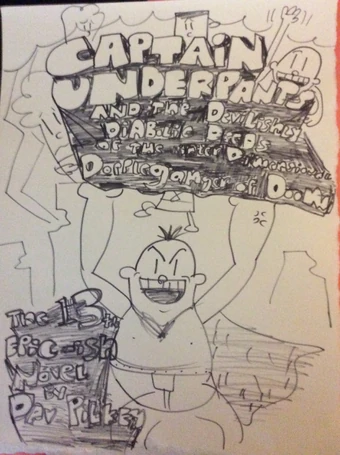 CAPTAIN
UNDERPANTS
AND THE DeviLishLy
DiABoLic DeeDs
OF THE inter Dimensional
DoppleganGer of Doom!
The 13th
EPic-ish
Novel
BY
DAV PiLkey